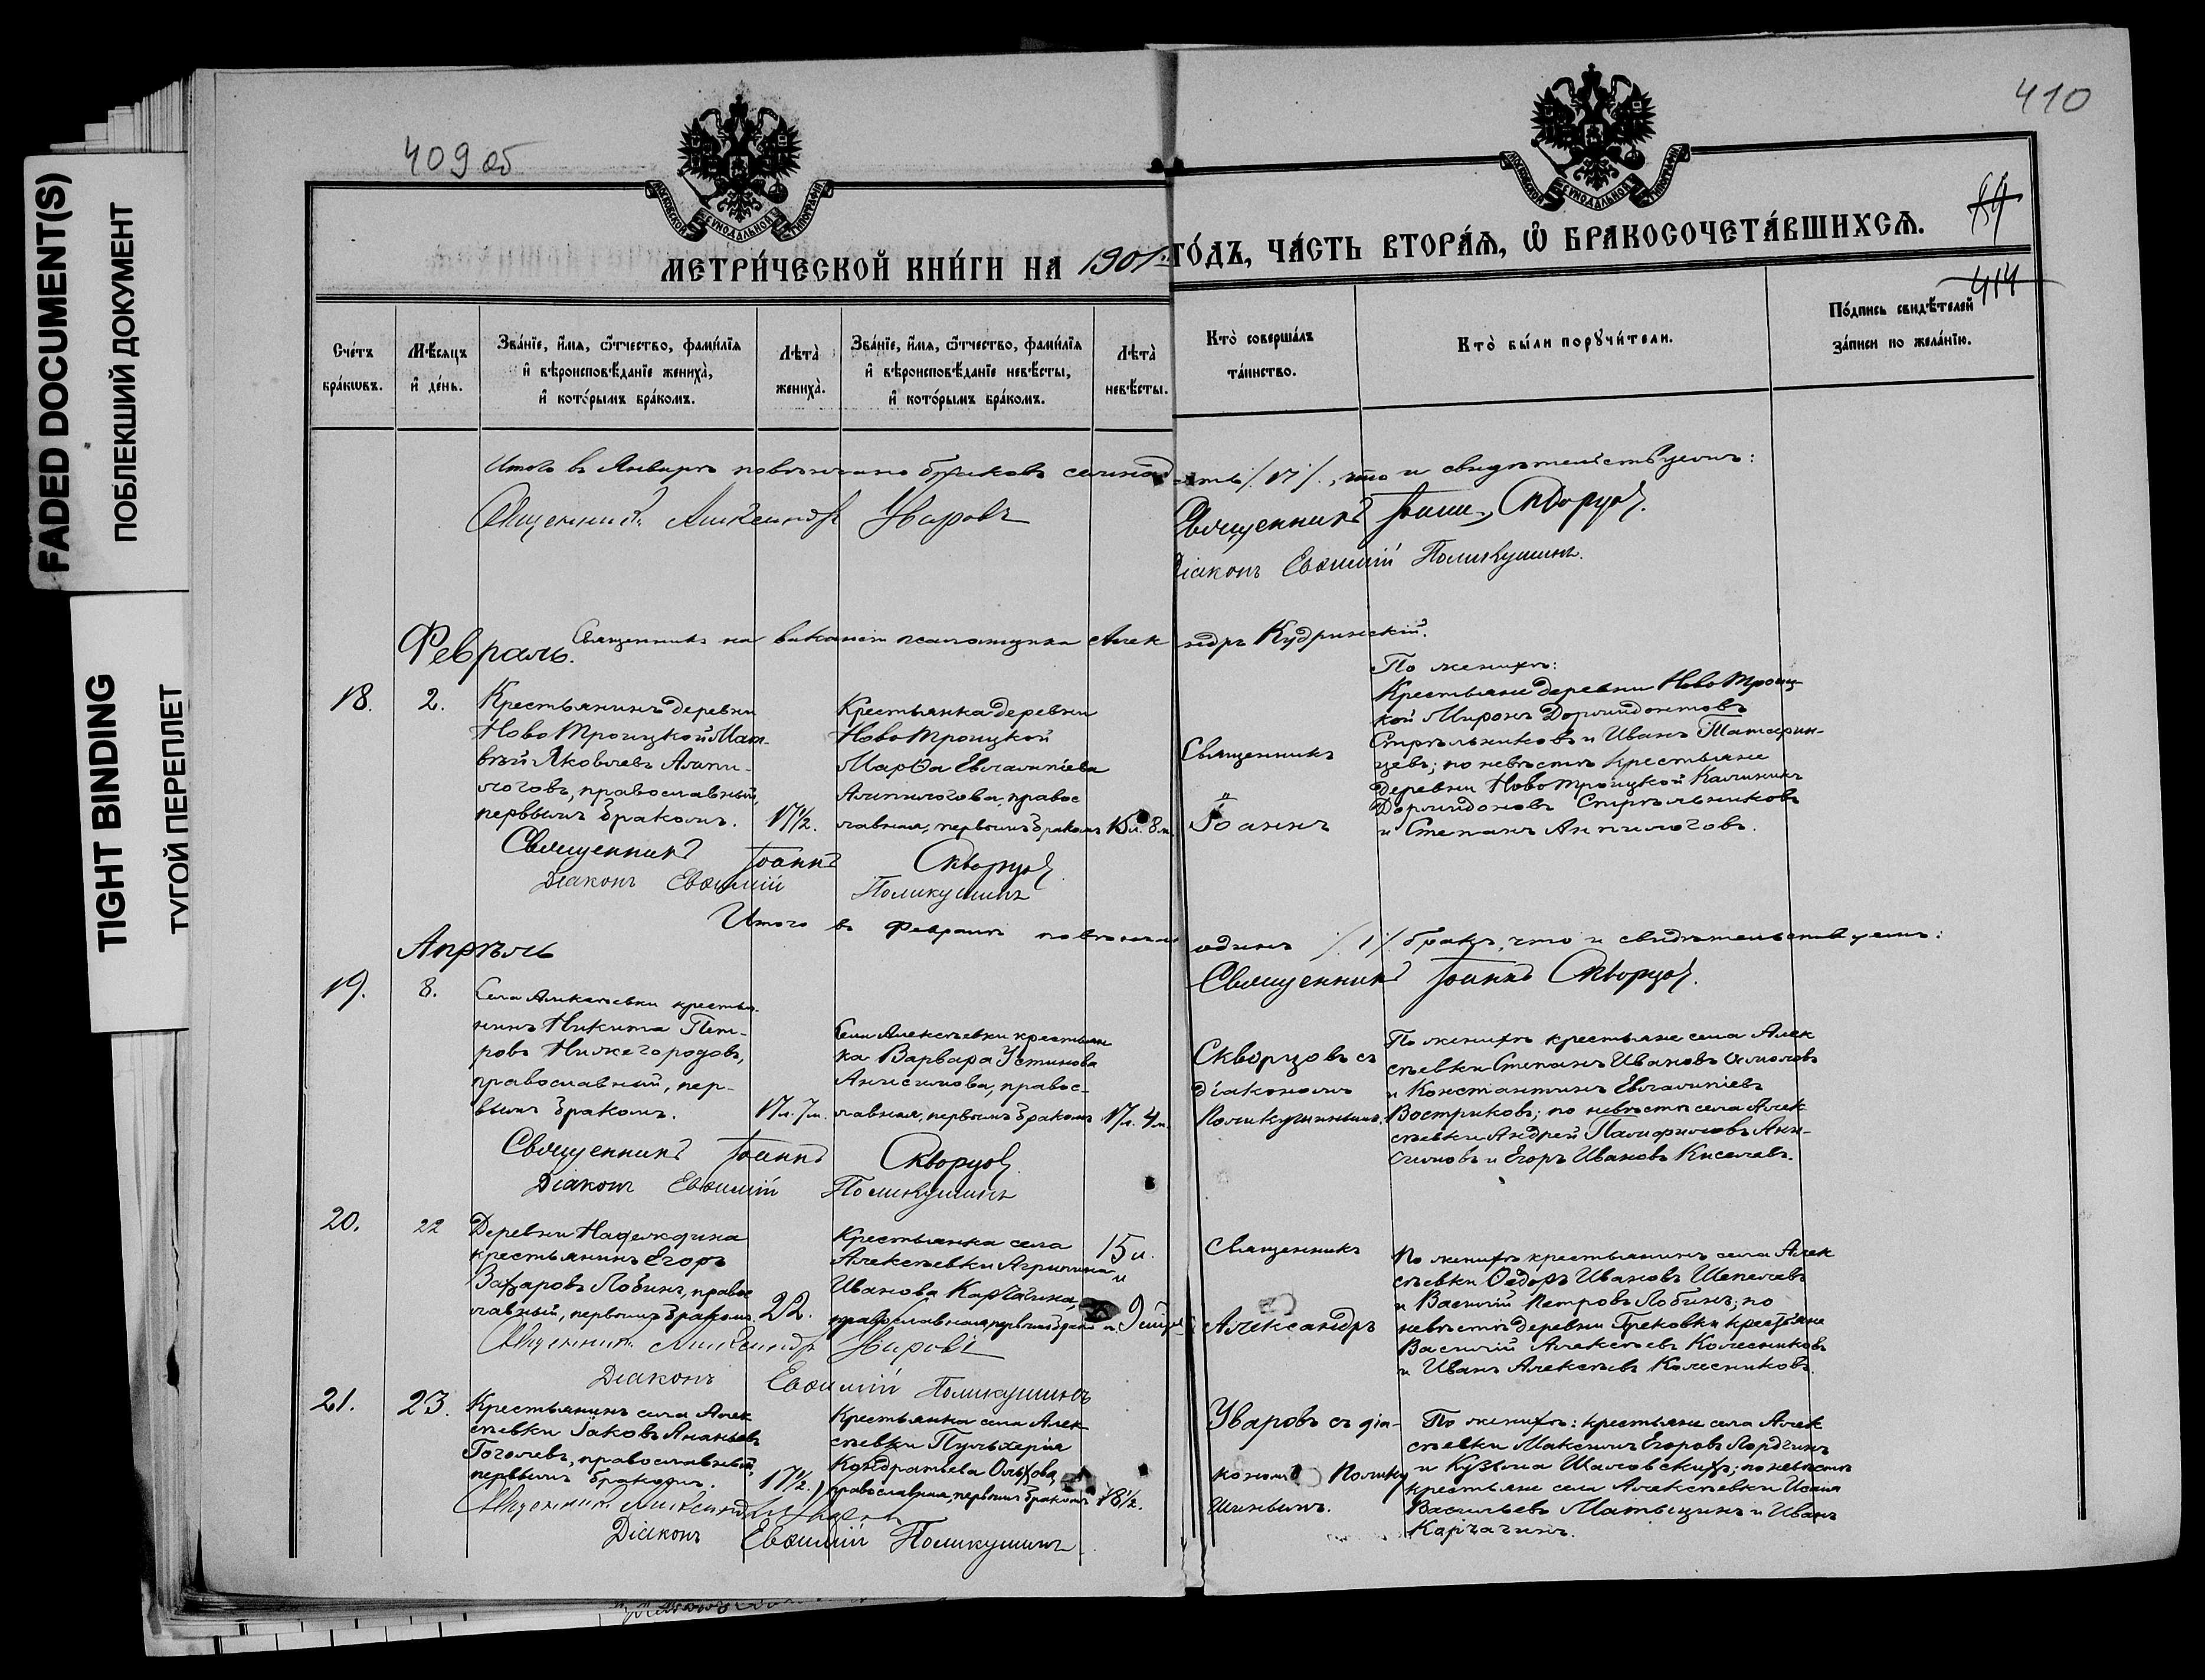 FADED DOCUMENT(S)
ПОБЛЕКШИЙ ДОКУМЕНТ
TIGHT BINDING
ТУГОЙ ПЕРЕПЛЕТ
409 об
410
МОСКОВСКОЙ СѴНОДАЛЬНОЙ ТИПОГРАФІИ
МОСКОВСКОЙ СѴНОДАЛЬНОЙ ТИПОГРАФІИ
МЕТРИ́ЧЕСКОЙ КНИ́ГИ НА 1901 ГО́ДЪ, ЧА́СТЬ ВТОРА́Ѧ, Ѡ҆ БРАКОСОЧЕТА́ВШИХСѦ.
414
Сче́тъ
бра́кѡвъ.
Мѣ́сѧцъ
и҆ де́нь.
Зва́нїе, и҆́мѧ, ѻ҆́тчество, фамѝлїѧ
и҆ вѣроисповѣ́данїе жениха̀,
и҆ кото́рымъ бра́комъ.
Лѣта̀
жениха̀.
Зва́нїе, и҆́мѧ, ѻ҆́тчество, фамѝлїѧ
и҆ вѣроисповѣ́данїе невѣ́сты,
и҆ кото́рымъ бра́комъ.
Лѣта̀
невѣ́сты.
Кто̀ соверша́лъ
та́инство.
Кто̀ бы́ли порꙋчи́тели.
По́дпись свидѣ́телей
за́писи по жела́нїю.
Итого въ Январѣ повѣнчано браковъ семнадцать /17/, что и свидѣтельствуемъ:
Священникъ Александръ Уваровъ
Священникъ Іоаннъ Скворцовъ.
Діаконъ Евѳимій Поликушинъ.
Священникъ на вакансіи псаломщика Александръ Кудринскій.
Февраль.
18.
2.
Крестьянинъ деревни
НовоТроицкой Мат-
вѣй Яковлевъ Анпи-
логовъ, православный,
первымъ бракомъ.
17½.
Крестьянка деревни
НовоТроицкой
Марѳа Евлампіева
Анпилогова, правос
лавная, первымъ бракомъ
15 л. 8 м.
Священникъ
Іоаннъ
По женихѣ:
Крестьяне деревни НовоТроиц-
кой Миронъ Дормидонтовъ
Стрѣльниковъ и Иванъ Татарин-
цевъ; по невѣстѣ крестьяне
деревни НовоТроицкой Калиникъ
Дормидоновъ Стрѣльниковъ
и Степанъ Анпилоговъ.
Священникъ Іоаннъ Скворцовъ.
Діаконъ Евѳимій Поликушинъ
Итого въ Февралѣ повѣнчанъ одинъ /1/ бракъ, что и свидѣтельствуемъ:
Священникъ Іоаннъ Скворцовъ.
Апрѣль
19.
8.
Села Алексѣевки крестья-
нинъ Никита Пет-
ровъ Нижегородовъ,
православный, пер-
вымъ бракомъ.
17 л. 7 м.
Села Алексѣевки крестьян
ка Варвара Устинова
Анисимова, правос-
лавная, первымъ бракомъ
17 л. 4 м.
Скворцовъ съ
діакономъ
Поликушинымъ.
По женихѣ крестьяне села Алек
сѣевки Степанъ Ивановъ
и Константинъ Евлампіевъ
Востриковъ; по невѣстѣ села Алек
сѣевки Андрей Памфиловъ Ани-
симовъ и Егоръ Ивановъ Киселевъ.
Священникъ Іоаннъ Скворцовъ.
Діаконъ Евѳимій Поликушинъ
20.
22
Деревни Надеждина
крестьянинъ Егоръ
Захаровъ Лобинъ, правос
лавный, первымъ бракомъ.
22.
Крестьянка села
Алексѣевки Агрипина
Иванова Карчагина,
православная, первымъ бракомъ
15 л.
и
Священникъ
Александръ
По женихѣ крестьянинъ села Алек
сѣевки Ѳедоръ Ивановъ Шепелевъ
и Василій Петровъ Лобинъ; по
невѣстѣ деревни Грековки крестьяне
Василій Алексѣевъ Колесниковъ
и Иванъ Алексѣевъ Колесниковъ.
Священникъ Александръ Уваровъ
Діаконъ Евѳимій Поликушинъ
21.
23.
Крестьянинъ села Алек
сѣевки Іаковъ Ананьевъ
Гоголевъ, православный,
первымъ бракомъ.
17½.
Крестьянка села Алек
сѣевки Пульхерія
Кондратьева Ольхова,
православная, первымъ бракомъ
18½.
Уваровъ съ діа-
кономъ Полику
шинымъ.
По женихѣ: крестьяне села Алек
сѣевки Максимъ Егоровъ
и Кузьма Шаловскихъ; по невѣстѣ
крестьяне села Алексѣевки Исаія
Васильевъ Матыцинъ и Иванъ
Карчагинъ.
Священникъ Александръ Уваровъ
Діаконъ Евѳимій Поликушинъ